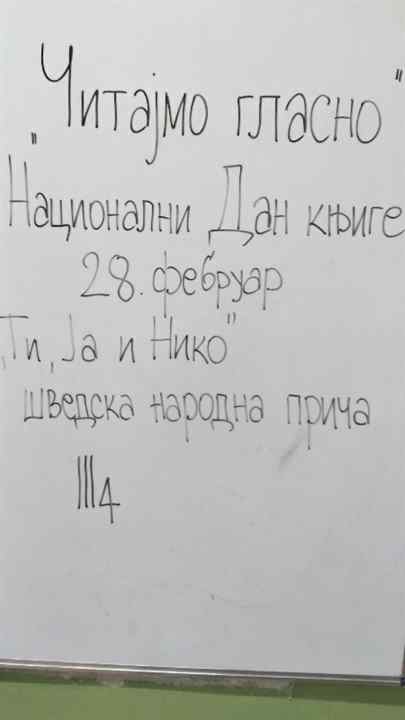 „Читајмо гласно"
Национални Дан књиге
28. фебруар
„Ти, Ја и Нико"
шведска народна прича
III4